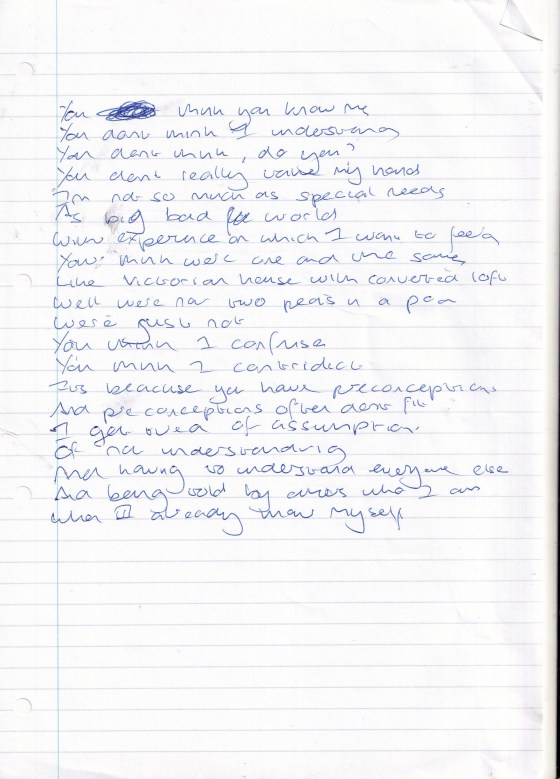 You think you know me
You dont think I understand
You dont think, do you?
You dont really value my
Im not so much as special needs
As big bad world
With experence on which I want to feed
You think we're one and the same
Like Victorian house with converted loft
Well were not two peas in a pod
We're just not
You think I confuse
You think I contridict
Its beacuse you have preconceptions
And preconceptions often dont fit
I get tired of assumption.
Of not understanding
And having to understand everyone else
And being told by others who I am
When I already know myself